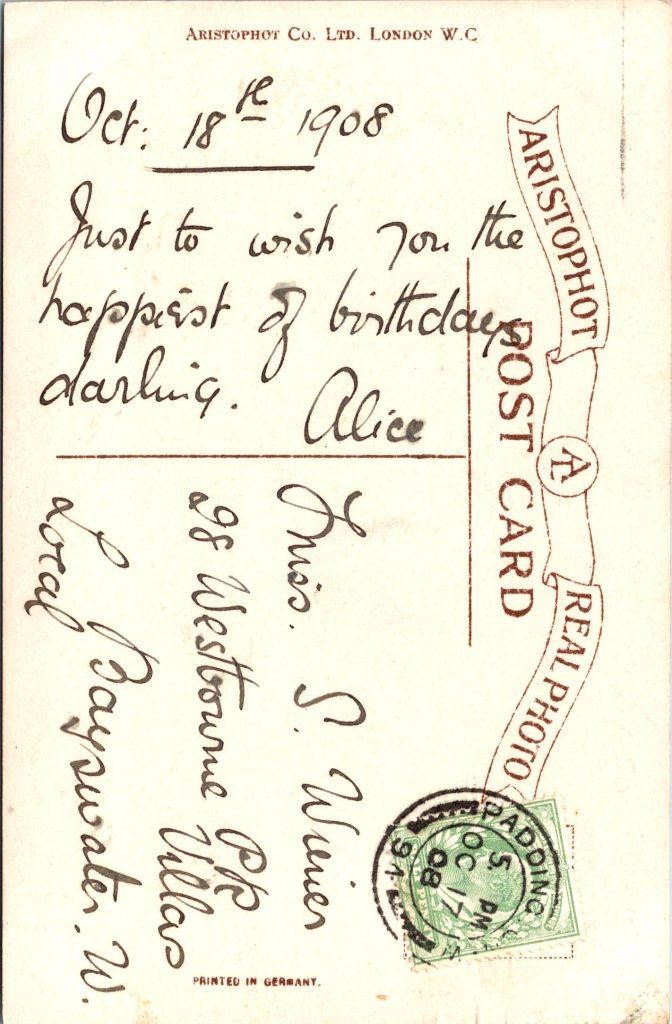 ARISTOPHOT CO. LTD. LONDON W.C
Oct: 18th 1908
Just to wish you the
happiest of birthdays
darling.
Alice
ARISTOPHOT
A
REAL PHOTO
POST CARD
Miss. S. Wiener
28 Westbourne Pk
Villas
Bayswater. W.
Local
PADDING
5 PM
OC 17
08
94
PRINTED IN GERMANY.